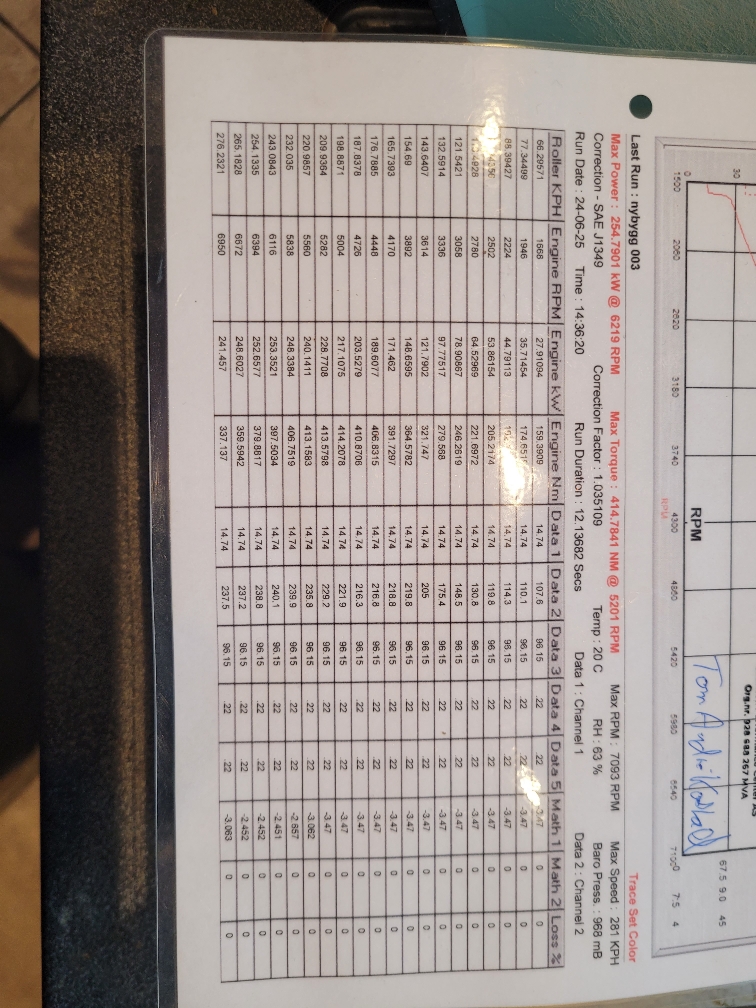 Org.nr. 928 688 267 MVA
30
0
67.5 9.0 45
0 7.5 4
1500 2060 2620 3180 3740 4300 4860 5420 5980 6540 7100
RPM
RPM
Trace Set Color
Last Run : nybygg 003
Max Power : 254.7901 kW @ 6219 RPM Max Torque : 414.7841 NM @ 5201 RPM Max RPM : 7093 RPM Max Speed : 281 KPH
Correction - SAE J1349 Correction Factor : 1.035109 Temp : 20 C RH : 63 % Baro Press. : 968 mB
Run Date : 24-06-25 Time : 14:36:20 Run Duration : 12.13682 Secs Data 1 : Channel 1 Data 2 : Channel 2
Roller KPH Engine RPM Engine kW Engine Nm Data 1 Data 2 Data 3 Data 4 Data 5 Math 1 Math 2 Loss %
66.29571 1668 27.91094 159.3909 14.74 107.6 96.15 22 22 -3.47 0 0
77.34499 1946 35.71454 14.74 110.1 96.15 22 22 -3.47 0 0
88.39427 2224 44.79113 14.74 114.3 96.15 22 22 -3.47 0 0
2502 53.86154 205.2174 14.74 119.8 96.15 22 22 -3.47 0 0
2780 64.52969 221.6972 14.74 130.8 96.15 22 22 -3.47 0 0
121.5421 3058 78.90867 246.2619 14.74 148.5 96.15 22 22 -3.47 0 0
132.5914 3336 97.77517 279.568 14.74 175.4 96.15 22 22 -3.47 0 0
143.6407 3614 121.7902 321.747 14.74 205 96.15 22 22 -3.47 0 0
154.69 3892 148.6595 364.5782 14.74 219.8 96.15 22 22 -3.47 0 0
165.7393 4170 171.462 391.7297 14.74 218.8 96.15 22 22 -3.47 0 0
176.7885 4448 189.6077 406.8315 14.74 216.8 96.15 22 22 -3.47 0 0
187.8378 4726 203.5279 410.8708 14.74 216.3 96.15 22 22 -3.47 0 0
198.8871 5004 217.1075 414.2078 14.74 221.9 96.15 22 22 -3.47 0 0
209.9364 5282 228.7708 413.5798 14.74 229.2 96.15 22 22 -3.47 0 0
220.9857 5560 240.1411 413.1583 14.74 235.8 96.15 22 22 -3.062 0 0
232.035 5838 248.3384 406.7519 14.74 239.9 96.15 22 22 -2.657 0 0
243.0843 6116 253.3521 397.5034 14.74 240.1 96.15 22 22 -2.451 0 0
254.1335 6394 252.6577 379.8817 14.74 238.8 96.15 22 22 -2.452 0 0
265.1828 6672 248.6027 359.5942 14.74 237.2 96.15 22 22 -2.452 0 0
276.2321 6950 241.457 337.137 14.74 237.5 96.15 22 22 -3.063 0 0